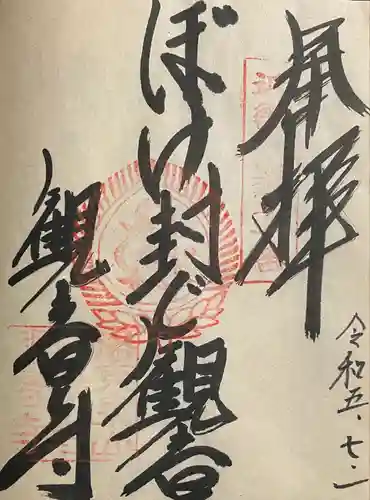 奉拝
ぼけ封じ観音
観音寺
令和五、七、一